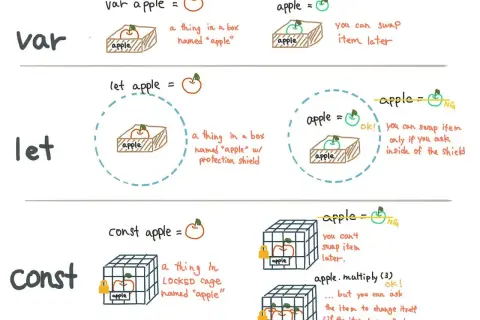 var
var apple =
apple
a thing in a box
named "apple"
apple =
apple
you can swap
item later
let
let apple =
apple
a thing in a box
named "apple" w/
protection shield
apple =
OK!
apple
apple =
NG
you can swap item
only if you ask
inside of the shield
const
const apple =
apple
a thing in
LOCKED cage
named "apple"
apple =
NG
apple
you can't
swap item
later.
apple.multiply(3)
OK!
... but you can ask
the item to change itself
apple